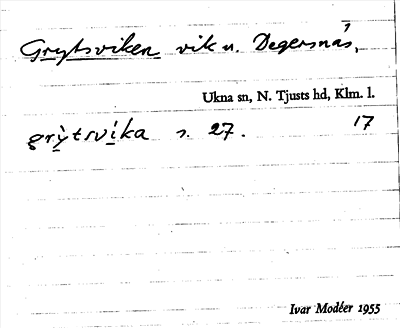 Grytsviken vik n. Degersnäs,
Ukna sn, N. Tjusts hd, Klm. l.
grỳtsvíka s. 27. 17
Ivar Modéer 1955